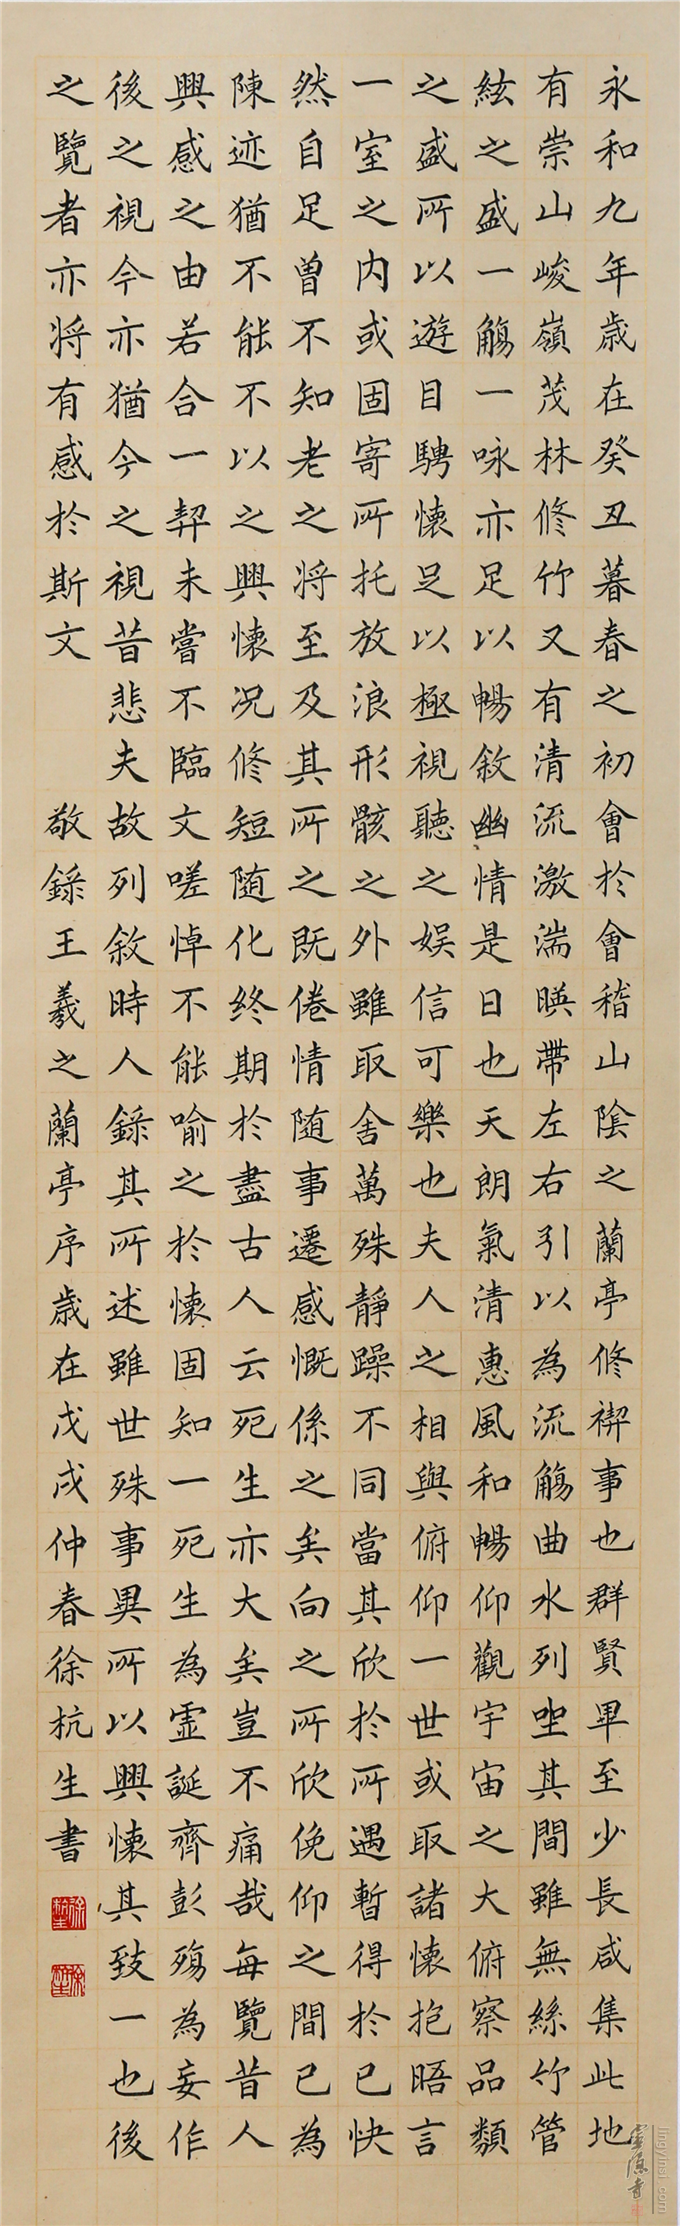 永和九年歲在癸丑暮春之初會於會稽山陰之蘭亭修禊事也群賢畢至少長咸集此地
有崇山峻嶺茂林修竹又有清流激湍暎帶左右引以為流觴曲水列坐其間雖無絲竹管
絃之盛一觴一咏亦足以暢敘幽情是日也天朗氣清惠風和暢仰觀宇宙之大俯察品類
之盛所以遊目騁懷足以極視聽之娛信可樂也夫人之相與俯仰一世或取諸懷抱晤言
一室之内或固寄所托放浪形骸之外雖取舍萬殊靜躁不同當其欣於所遇暫得於己快
然自足曾不知老之将至及其所之既倦情随事遷感慨係之矣向之所欣俛仰之間已為
陳迹猶不能不以之興懷况修短随化終期於盡古人云死生亦大矣豈不痛哉每覽昔人
興感之由若合一契未嘗不臨文嗟悼不能喻之於懷固知一死生為虛誕齊彭殤為妄作
後之視今亦猶今之視昔悲夫故列敘時人錄其所述雖世殊事異所以興懷其致一也後
之覽者亦将有感於斯文 敬錄王羲之蘭亭序歲在戊戌仲春徐杭生書
靈隱寺
lingyinsi.com